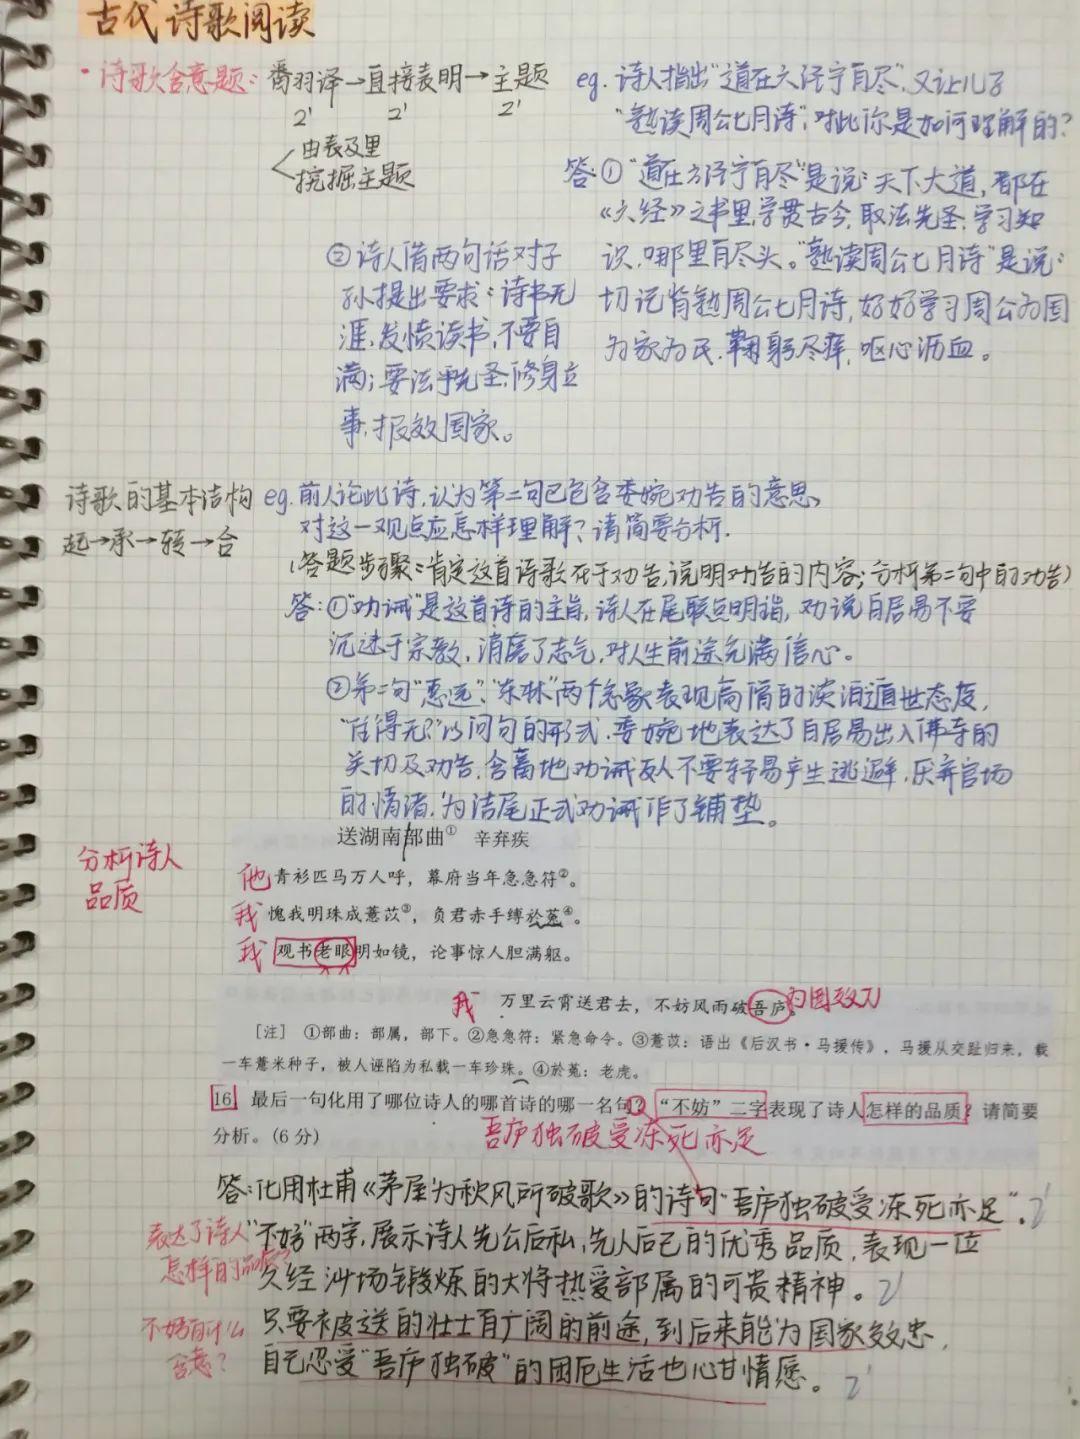 古代诗歌阅读
·诗歌含意题：
番羽译→直接表明→主题
2' 2' 2'
由表及里
挖掘主题
eg. 诗人指出"道在六泾宁有尽",又让儿子
"熟读周公七月诗",对此你是如何理解的?
答:①"道在六泾宁有尽"是说:天下大道,都在
《六经》之书里,学贯古今,取法先圣,学习知
识,哪里有尽头。"熟读周公七月诗"是说:
切记背熟周公七月诗,好好学习周公为国
为家为民,鞠躬尽瘁,呕心沥血。
②诗人借两句话对子
孙提出要求:诗书无
涯,发愤读书,不要自
满;要法乎先圣,修身立
事,报效国家。
诗歌的基本结构
起→承→转→合
eg.前人论此诗,认为第二句已包含委婉劝告的意思,
对这一观点应怎样理解?请简要分析.
(答题步骤:肯定这首诗歌在于劝告,说明劝告的内容;分析第二句中的劝告)
答:①"劝诫"是这首诗的主旨,诗人在尾联点明指,劝说白居易不要
沉迷于宗教,消磨了志气,对人生前途充满信心。
②第二句"惠远"、"东林"两个意象表现高僧的淡泊遁世态度,
"住得无?"以问句的形式,委婉地表达了白居易出入佛寺的
关切及劝告,含蓄地劝诫友人不要轻易产生逃避,厌弃官场
的情绪,为结尾正式劝诫作了铺垫。
分析诗人
品质
送湖南部曲① 辛弃疾
他 青衫匹马万人呼，幕府当年急急符②。
我 愧我明珠成薏苡③，负君赤手缚於菟④。
我 观书老眼明如镜，论事惊人胆满躯。
我 万里云霄送君去，不妨风雨破吾庐。为国效力
[注] ①部曲：部属，部下。②急急符：紧急命令。③薏苡：语出《后汉书·马援传》，马援从交趾归来，载
一车薏米种子，被人诬陷为私载一车珍珠。④於菟：老虎。
16 最后一句化用了哪位诗人的哪首诗的哪一名句？"不妨"二字表现了诗人怎样的品质？请简要
分析。(6分)
吾庐独破受冻死亦足
答:化用杜甫《茅屋为秋风所破歌》的诗句"吾庐独破受冻死亦足". 2'
表达了诗人
怎样的品质?
"不妨"两字,展示诗人先公后私,先人后己的优秀品质,表现一位
久经沙场锻炼的大将热爱部属的可贵精神。2'
不妨有什么
含意?
只要被送的壮士有广阔的前途,到后来能为国家效忠,
自己忍受"吾庐独破"的困厄生活也心甘情愿。2'